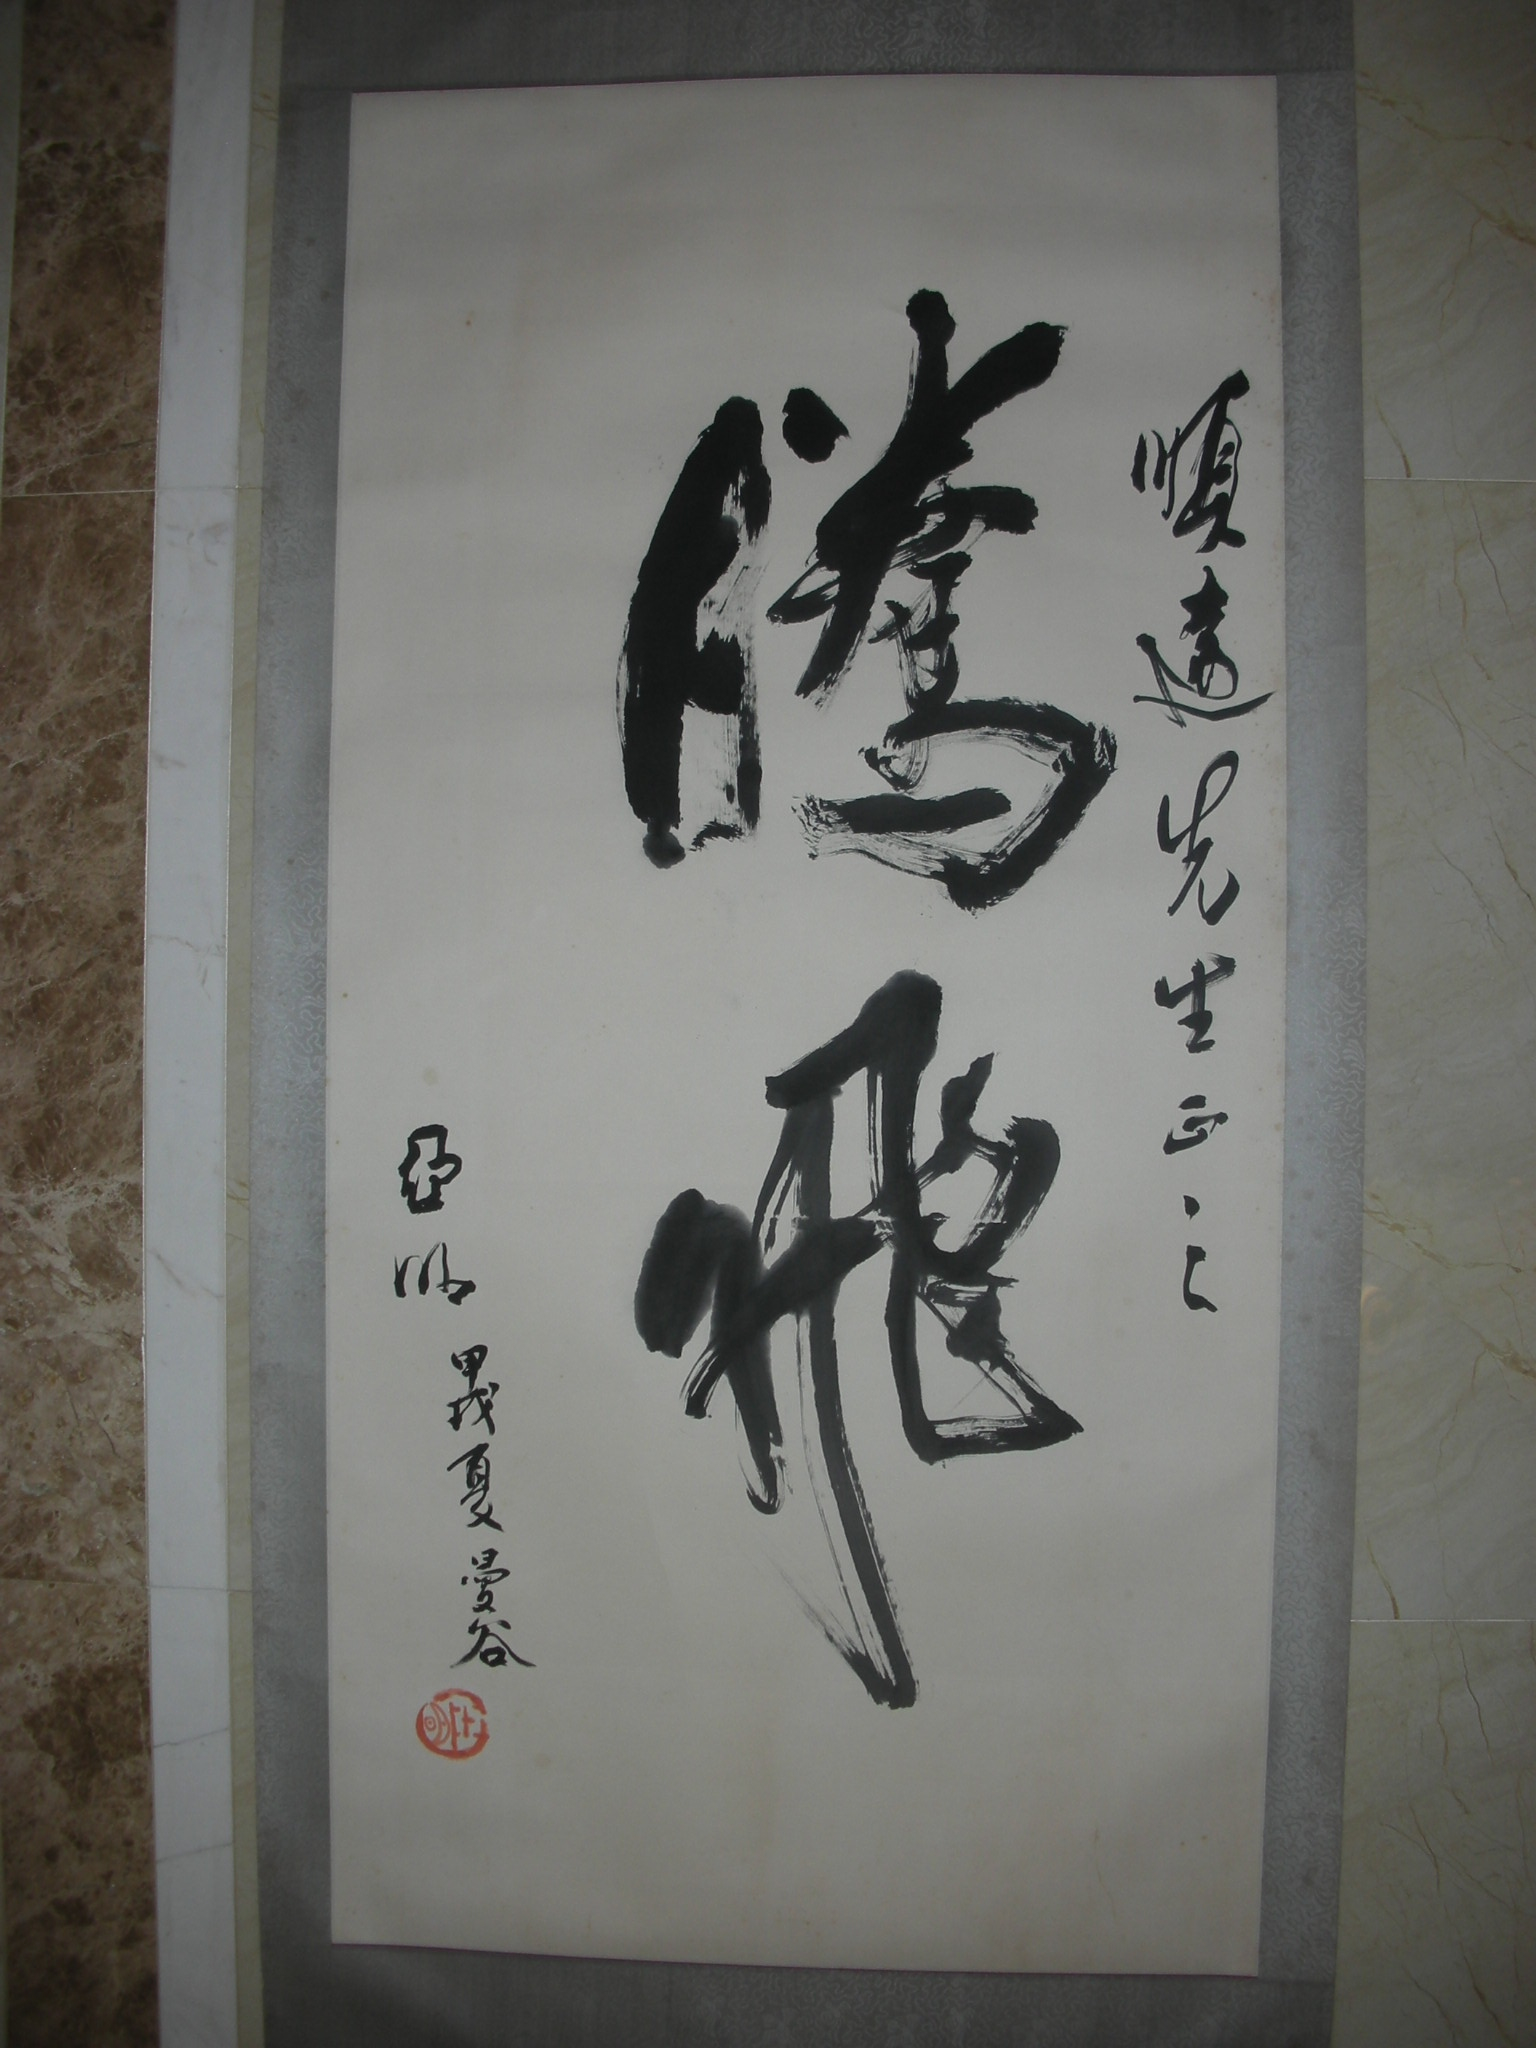 順遠先生正之
騰飛
亞明
甲戌夏曼谷